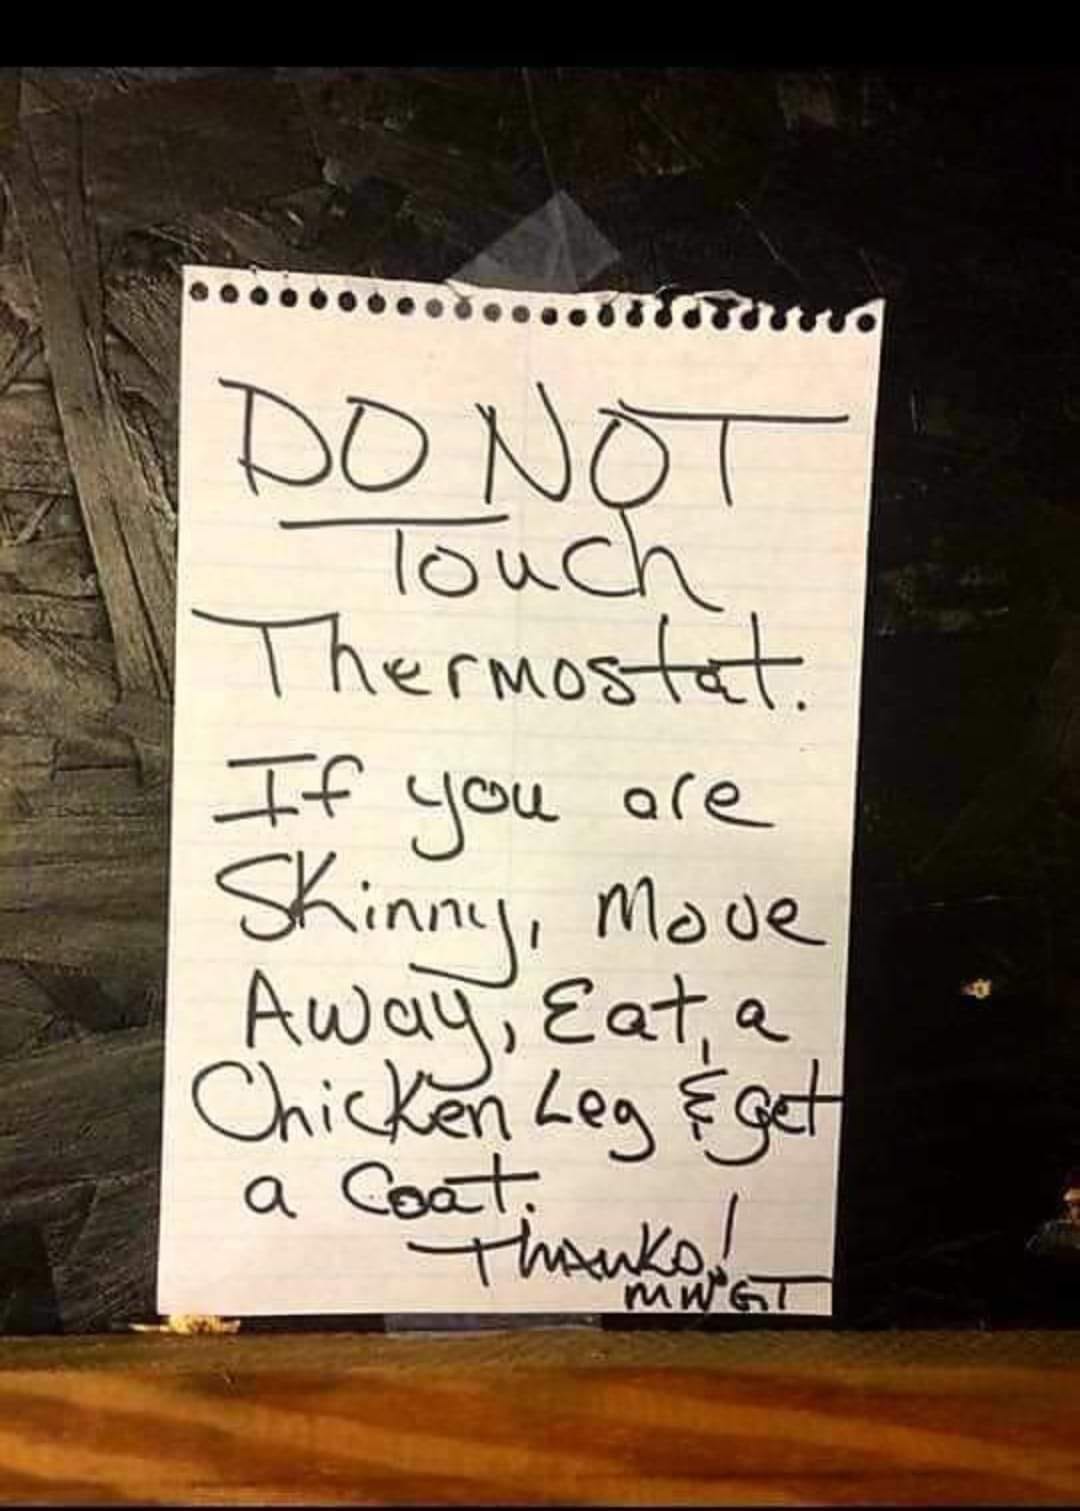 DO NOT
Touch
Thermostat.
If you are
Skinny, Move
Away, Eat a
Chicken Leg & get
a Coat.
Thanks!
MNGT